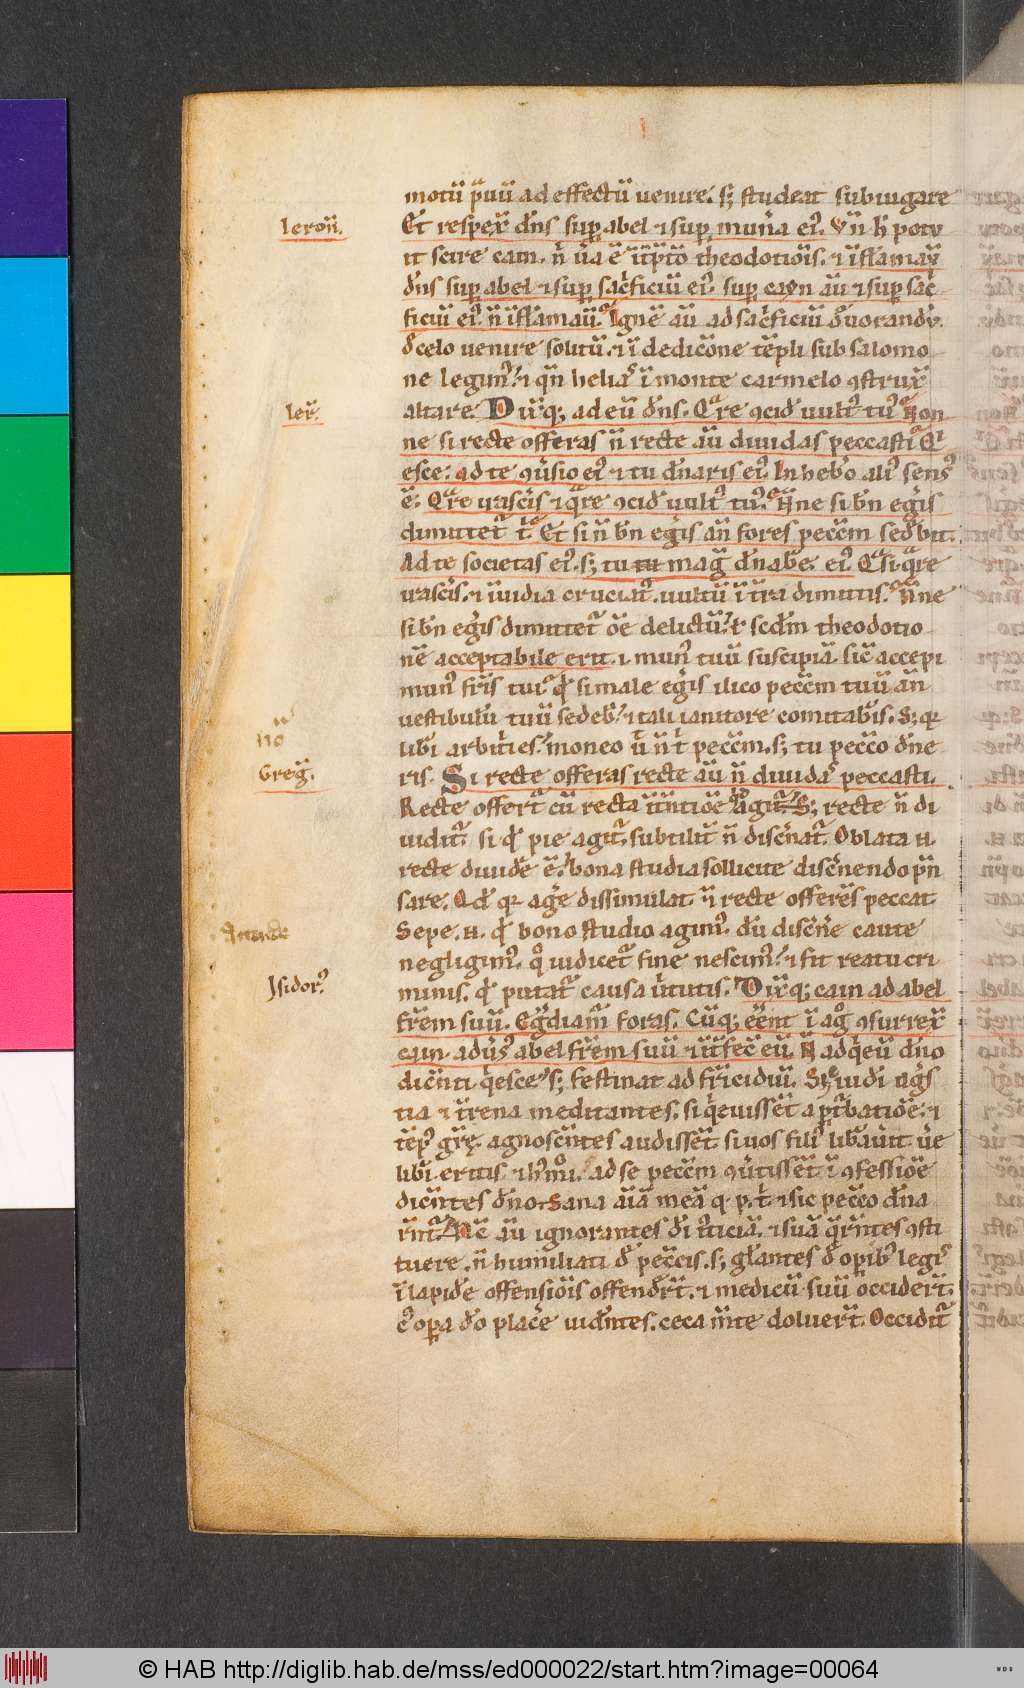 motū p̄uū ad effectū uenire. s; studeat subiugare
Ieroñ.
Et respex̄ dn̄s sup abel ⁊ sup mun̄a ei᾽. Vn̄ h̄ potu
it scire cain. n̄ ū̄a ē īt̄p̄tō theodotiōis. ⁊ īflamau̅
dn̄s sup abel ⁊ sup sac̄ficiū ei᾽. sup cayn aū ⁊ sup sac̄
ficiū ei᾽ n̄ īflamau̅. Ignē aū ad sac̄ficiū d̄uorandū
d̄ celo uenire solitū. ⁊ ī dedicōne tēpli sub salomo
ne legim᾽. ⁊ qn̄ helias ī monte carmelo ꝯstrux̄
Ier̄.
altare. Dix̄q; ad eū dn̄s. Qͣre ꝯcid̄ uult᾽ tu᾽. Non
ne si recte offeras n̄ recte aū diuidas peccasti. Qͥ
esce. ad te ꝯūsio ei᾽ ⁊ tu dn̄aris ei᾽. In heb̄o ali᾽ sens᾽
ē. Qͣre irascīs ⁊ qͣre ꝯcid̄ uult᾽ tu᾽. Nn̄e si bn̄ eḡis
dimittet᾽ t̄. Et si n̄ bn̄ eḡis an̄ fores pecc̄m sed̄bit.
Ad te societas ei᾽. s; tu mag̅ dn̄ab̄e. ei᾽. Qͣsi qͣre
irascīs. ⁊ īuidia cruciat᾽. uultū ī t̄ra dimittis. Nn̄e
si bn̄ eḡis dimittet᾽ ōe delictū. ł scd̄m theodotio
nē acceptabile erit. i. mun᾽ tuū suscipiā. sic̄ accepi
mun᾽ fr̄is tui. qd̄ si male eḡis ilico pecc̄m tuū an̄
uestibulū tuū sedeb̄. ⁊ tali ianitore comitab̄is. S; qꝛ
no
lib̄i arbit̄es. moneo ū n̄ t̄ pecc̄m. s; tu pecc̄o dn̄e
Greḡ.
ris. Si recte offeras recte aū n̄ diuidas peccasti.
Recte offert᾽ cū recta īt̄ntiōe agit᾽. S; recte n̄ di
uidit᾽ si qd̄ pie agit᾽. subtilit̄ n̄ disc̄nat᾽. Oblata .n.
recte diuid̄e ē. bona studia sollicite disc̄nendo pn̄
sare. Qd̄ qꝛ aḡe dissimulat. n̄ recte offerēs peccat
Sepe .n. qd̄ bono studio agim᾽. dū disc̄n̄e caute
negligim᾽. qͦ iudicet᾽ fine nescim᾽. ⁊ fit reatu cri
Isidor᾽.
minis. qd̄ putat᾽ causa ūtutis. Dix̄q; cain ad abel
fr̄em suū. Eḡdiam̄ foras. Cūq; eēnt ī agͦ ꝯsurrex̄
cain adūs᾽ abel fr̄em suū ⁊ īt̄fec̄ eū. N̄ adq̄eū dn̄o
dic̄nti q̄esce. s; festinat ad fr̄icidiū.
tia ⁊ t̄rena meditantes.
tēp᾽ gr̄ę. agnosc̄ntes audissēt. si uos fili᾽ lib̄aūit ūe
lib̄i eritis.
dic̄ntes dn̄o. Sana aīā meā qꝛ p. t̄. ⁊ sic pecc̄o dn̄a
ignorantes d̄i iusticiā. ⁊ suā qr̄ntes ꝯsti
tuere. n̄ humiliati d̄ pecc̄is. s; gl̄antes d̄ opib᾽ legis
ī lapid̄e offensiōis offend̄rt. ⁊ medicū suū occider̄t.
c᾽ opa d̄o plac̄e uid̄ntes. ceca m̄te doluer̄t. Occidit᾽
© HAB http://diglib.hab.de/mss/ed000022/start.htm?image=00064